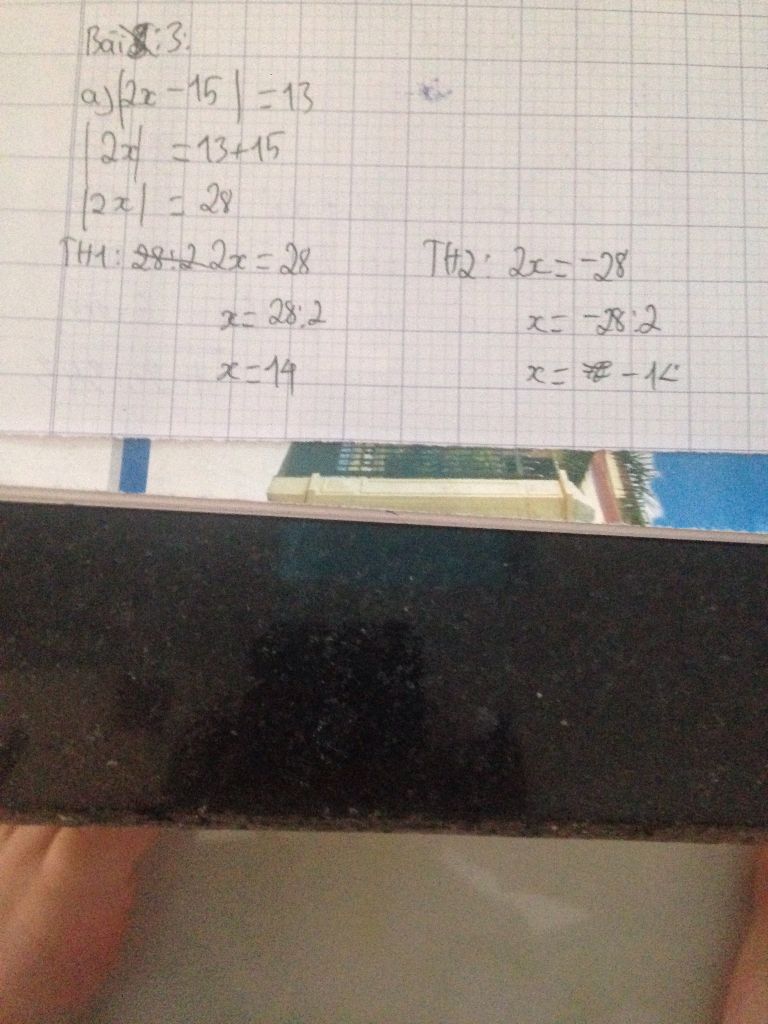 Bài 3:
a) |2x - 15| = 13
|2x| = 13+15
|2x| = 28
TH1: 28:2 2x = 28
x = 28:2
x = 14
TH2: 2x = -28
x = -28:2
x = -14